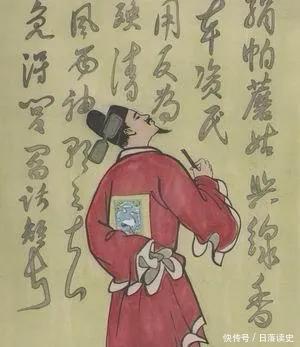 絹帕蘑菇與線香
本資民
用反為
殃清
風兩袖朝天去
免得閭閻話短長
快传号 / 日落读史